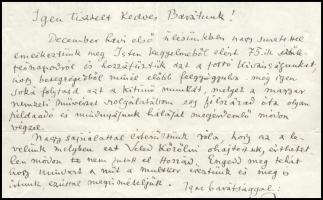 Igen tisztelt Kedves Barátunk!
December havi első ülésünkben nagy szeretettel
emlékeztünk meg Isten kegyelméből elért 75.-ik
születésnapodról és hozzáfűztük azt a forró kívánságunkat,
hogy betegségedből minél előbb felgyógyulva még igen
soká folytasd azt a kitünő munkát, melyet a magyar
nemzeti művészet szolgálatában egy félszázad óta olyan
példaadó és mindnyájunk háláját megérdemlő módon
végzel.
Nagy sajnálattal értesültünk róla, hogy az a le-
velünk melyben ezt Veled közölni óhajtottuk, érthetet-
len módon nem jutott el Hozzád. Engedd meg tehát
hogy
ezúttal megismételjük. Igaz barátsággal: